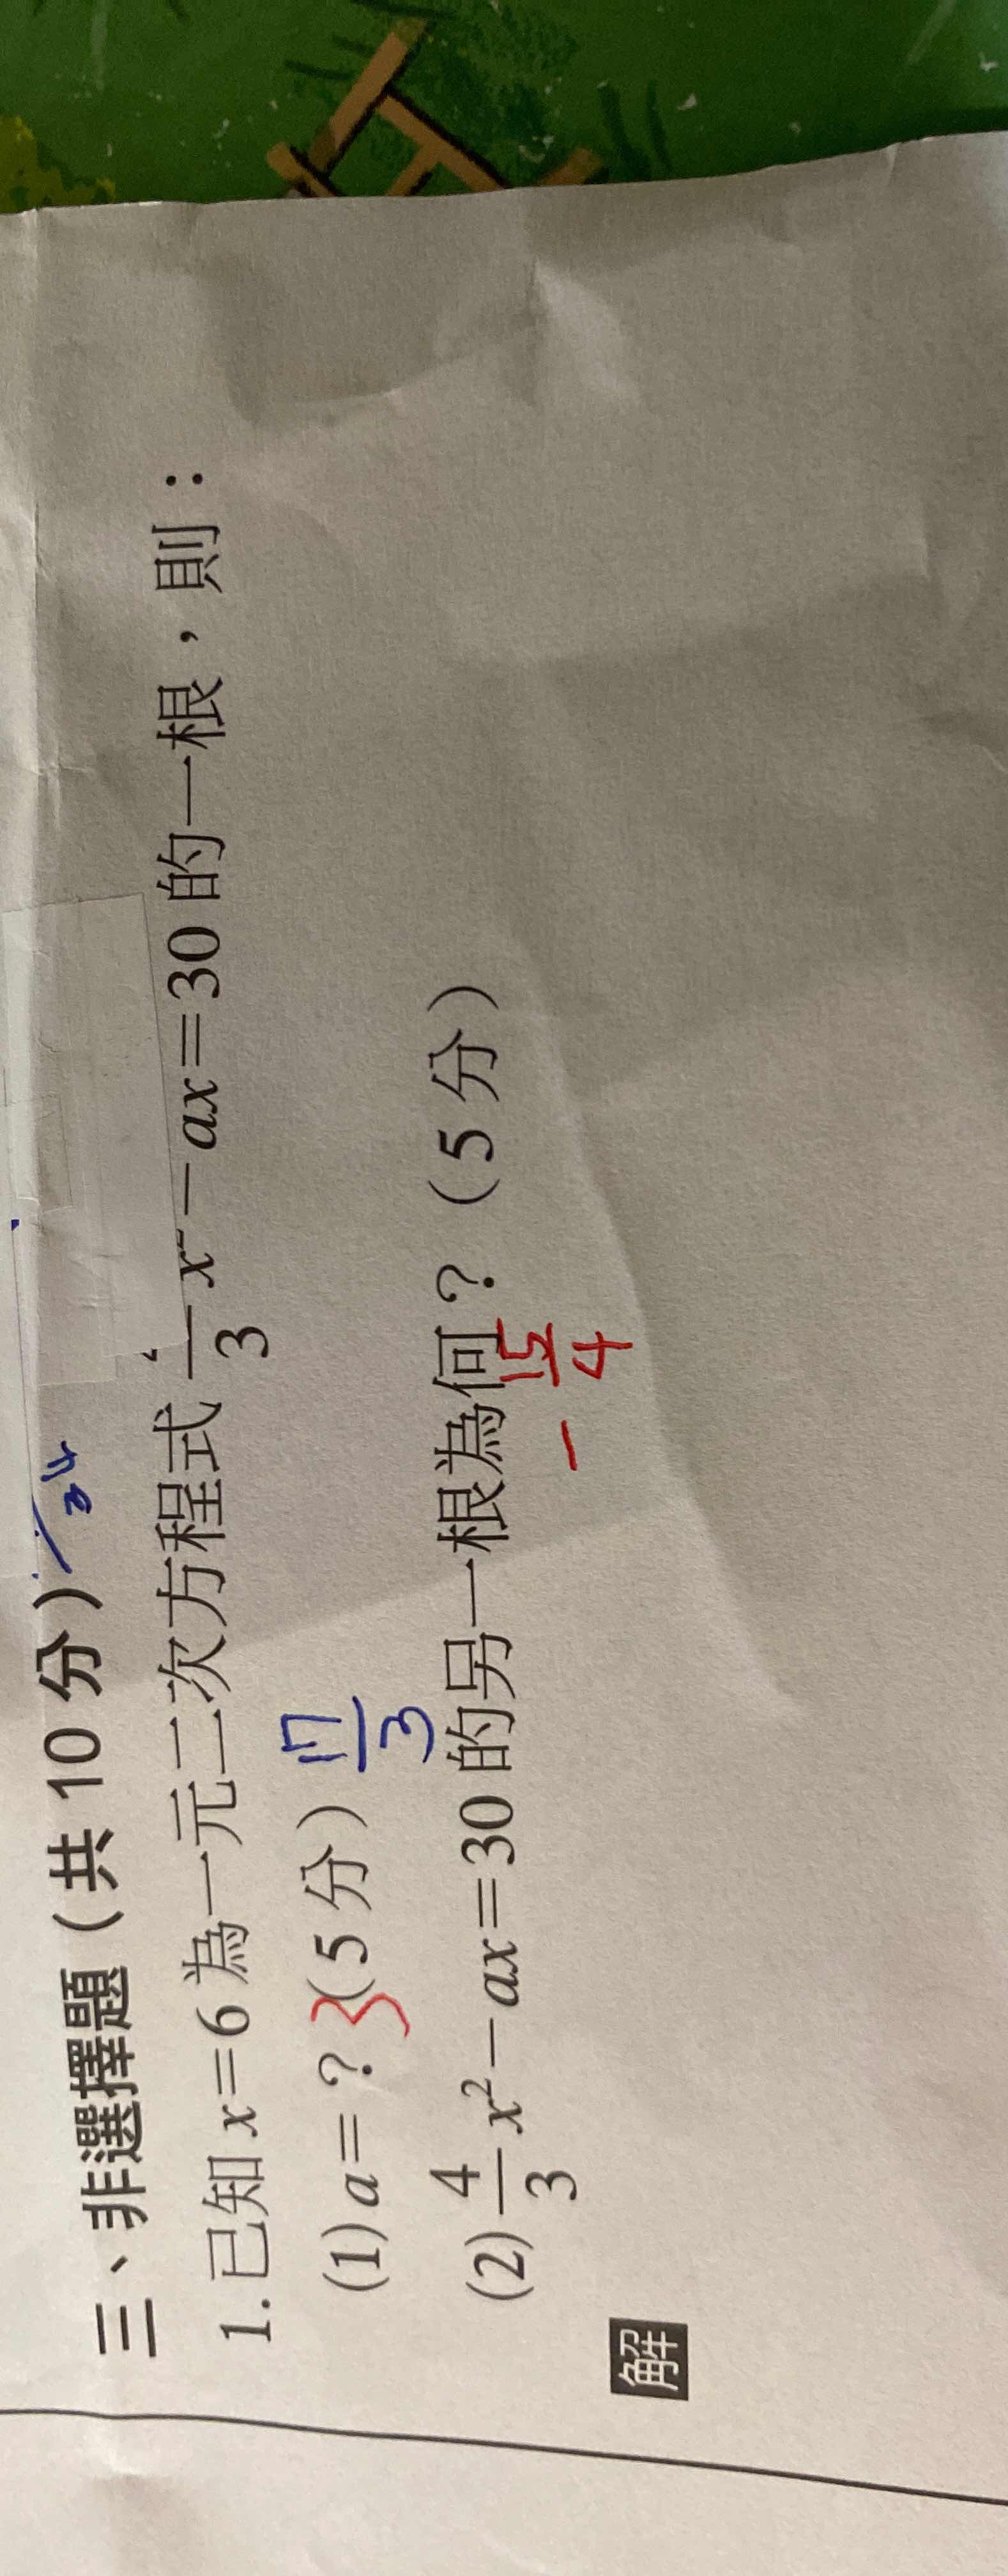 三、非選擇題（共 10 分）
1. 已知 x=6 為一元二次方程式 —/3 x²－ax=30 的一根，則：
(1) a=？3（5 分）17/3
(2) 4/3 x²－ax=30 的另一根為何？（5 分）
－15/4
解